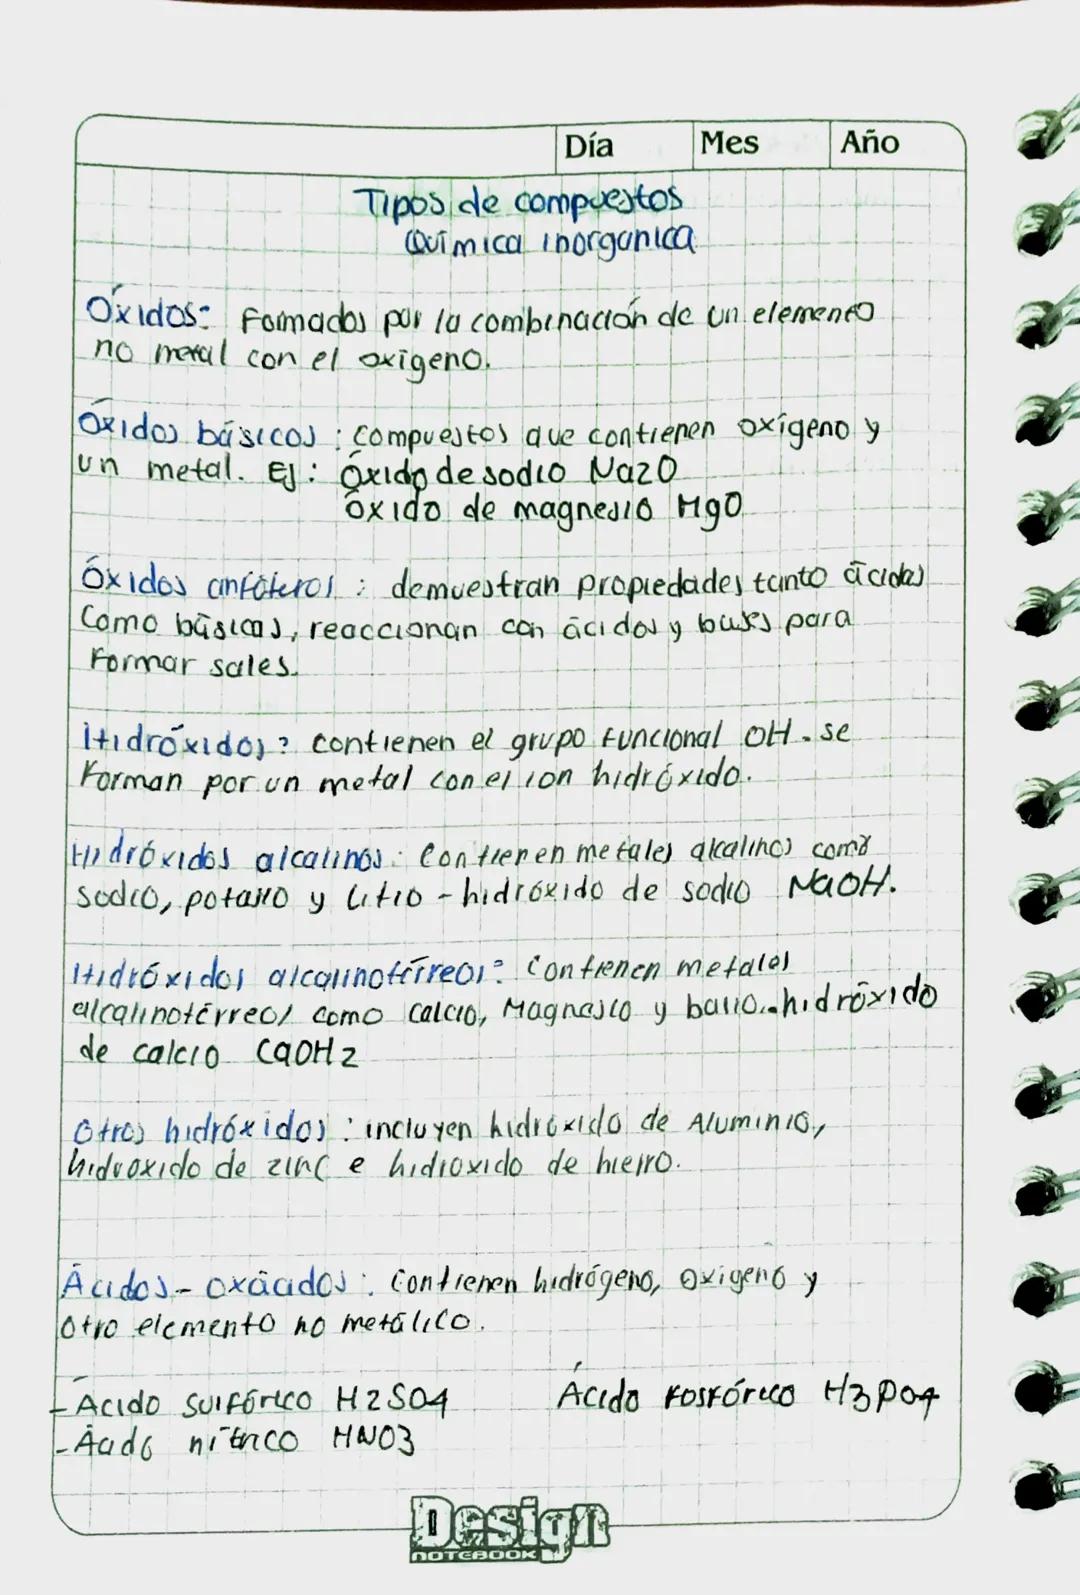 Día Mes Año
Tipos de compuestos
Química inorganica
Óxidos: Formados por la combinación de un elemento
no metal con el oxigeno.
Óxidos básicos: compuestos que contienen oxígeno y
un metal. Ej: Óxido de sodio Na2O
óxido de magnesio MgO
Óxidos anfóteros: demuestran propiedades tanto ácidas
Como básicas, reaccionan con ácidos y bases para
Formar sales.
Hidróxidos: contienen el grupo funcional OH. se
Forman por un metal con el ion hidróxido.
Hidróxidos alcalinos: Contienen metales alcalinos como
sodio, potasio y litio - hidróxido de sodio NaOH.
Hidróxidos alcalinotérreos: Contienen metales
alcalinotérreos como calcio, Magnesio y bario.-hidróxido
de calcio CaOH2
Otros hidróxidos: incluyen hidróxido de Aluminio,
hidroxido de zinc e hidroxido de hierro.
Ácidos - oxácidos: Contienen hidrógeno, Oxigeno y
Otro elemento no metálico.
- Ácido Sulfórico H2SO4 Ácido Fosfórico H3PO4
- Ácido nítrico HNO3
Design
NOTEBOOK